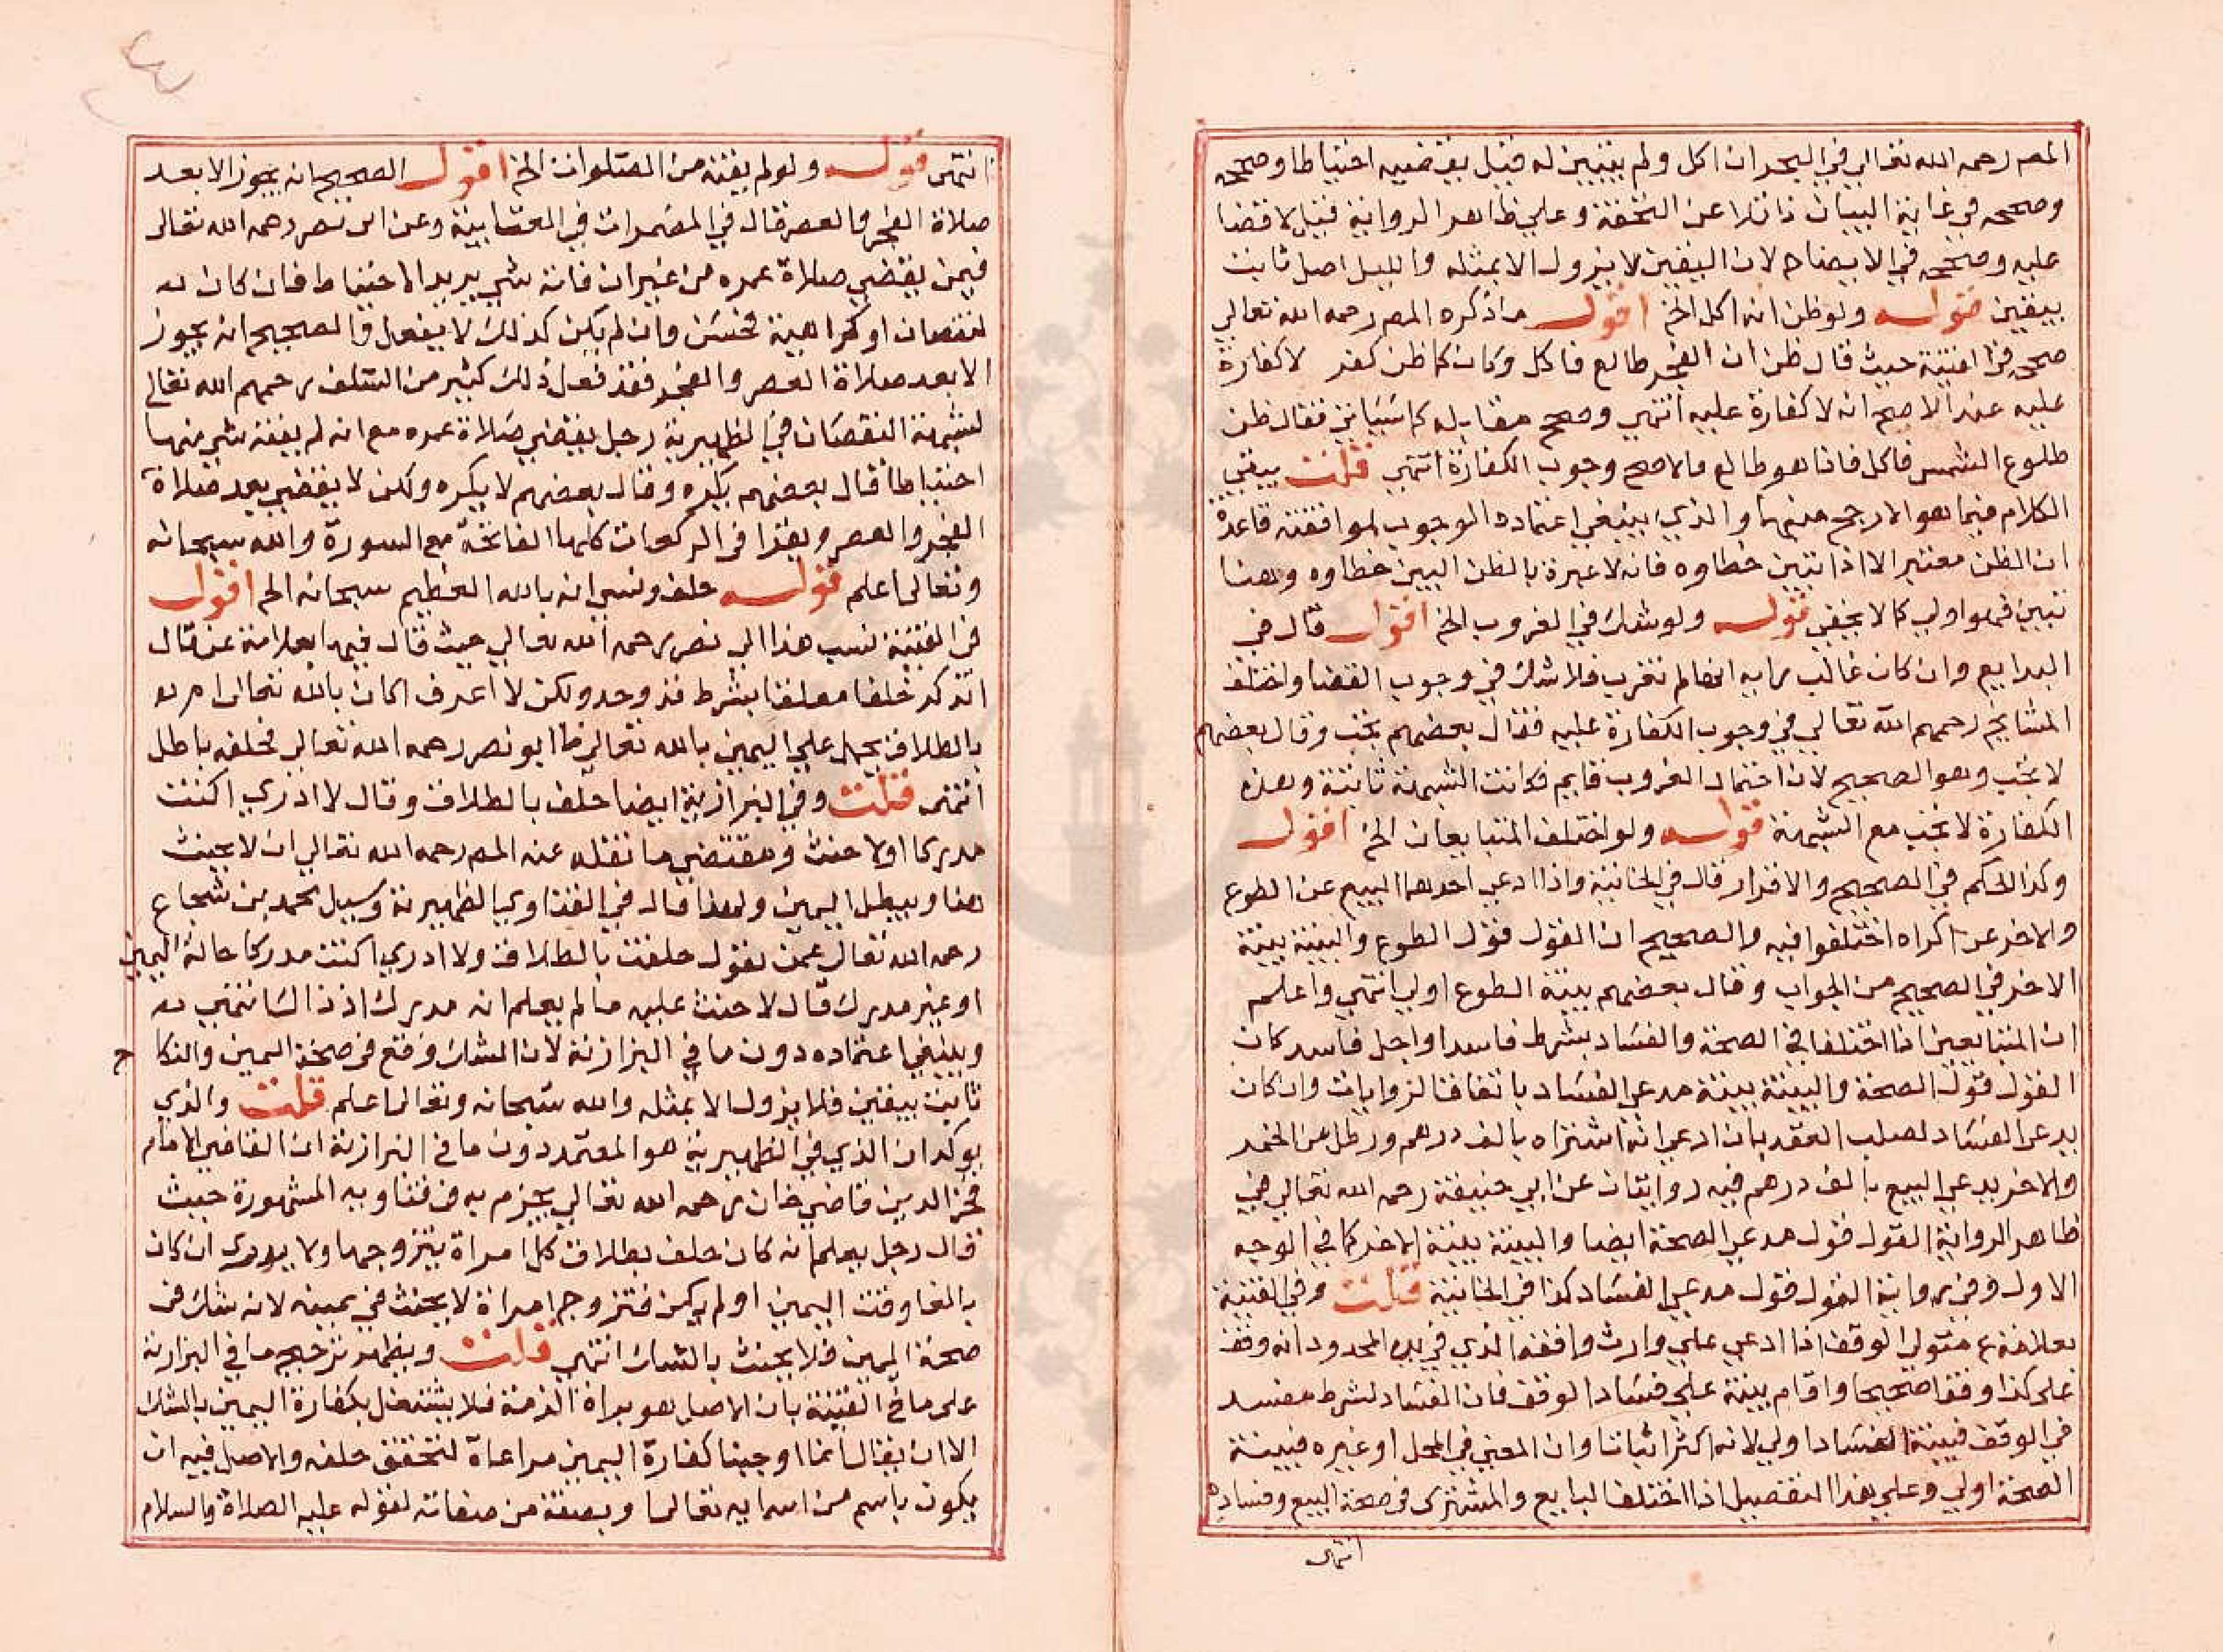 المص رحمه الله تعالي في البحر ان اكل ولم يتبين له قيل يقضيه احتياطا وصححه
وصححه في غاية البيان ناقلا عن التحفة وعلي ظاهر الرواية قيل لا قضا
عليه وصححه في الايضاح لان اليقين لا يزول الا بمثله والليل اصل ثابت
بيقين قوله ولو ظن انه اكل الخ اقول ما ذكره المص رحمه الله تعالي
صححه في القنية حيث قال ظن ان الفجر طالع فاكل وكان كما ظن كفر لا كفارة
عليه عند الاصح انه لا كفارة عليه انتهي وصحح مقابله كما سياتي فقال ظن
طلوع الشمس فاكل فاذا هو طالع فالاصح وجوب الكفارة انتهي قلت يبقي
الكلام فيما هو الارجح منهما والذي ينبغي اعتماده الوجوب لموافقته قاعدة
ان الظن معتبر الا اذا تبين خطاوه فانه لا عبرة بالظن البين خطاوه وهنا
تبين فهو اولي كما لا يخفي قوله ولو شك في الغروب الخ اقول قال في
البدايع وان كان غالب رايه انها لم تغرب فلا شك في وجوب القضا واختلف
المشايخ رحمهم الله تعالي في وجوب الكفارة عليه فقال بعضهم تجب وقال بعضهم
لا تجب وهو الصحيح لان احتمال الغروب قايم فكانت الشبهة ثابتة وهذه
الكفارة لا تجب مع الشبهة قوله ولو اختلف المتبايعان الخ اقول
وكذا الحكم في الصحيح والاقرار قال في الخانية واذا ادعي احدهما البيع عن الطوع
والاخر عن اكراه اختلفوا فيه والصحيح ان القول قول الطوع والبينة بينة
الاخر في الصحيح من الجواب وقال بعضهم بينة الطوع اولي انتهي واعلم
ان المتبايعين اذا اختلفا في الصحة والفساد بشرط فاسد او اجل فاسد كان
القول قول الصحة والبينة بينة مدعي الفساد باتفاق الروايات وان كان
يدعي الفساد لصلب العقد بان ادعي انه اشتراه بالف درهم ورطل من الخمر
والاخر يدعي البيع بالف درهم فيه روايتان عن ابي حنيفة رحمه الله تعالي في
ظاهر الرواية القول قول مدعي الصحة ايضا والبينة بينة الاخر كما في الوجه
الاول وفي رواية القول قول مدعي الفساد كذا في الخانية قلت وفي القنية
بعلامة ع متولي الوقف اذا ادعي علي وارث واقفه الذي في يده المحدود انه وقف
علي كذا وقفا صحيحا واقام بينة علي فساد الوقف فان الفساد لشرط مفسد
في الوقف فبينة الفساد اولي لانه اكثر اثباتا وان المعني في المحل او غيره فبينة
الصحة اولي وعلي هذا التفصيل اذا اختلف البايع والمشتري في صحة البيع وفساده
انتهى
انتهى قوله ولو لم يفته من الصلوات الخ اقول الصحيح انه يجوز الا بعد
صلاة الفجر والعصر قال في المضمرات في العتابية وعن ابي نصر رحمه الله تعالى
فيمن يقضي صلاة عمره من غير ان فاته شي يريد الاحتياط فان كان له
لنقصان او كراهية فحسن وان لم يكن كذلك لا يفعل والصحيح انه يجوز
الا بعد صلاة العصر والفجر فقد فعل ذلك كثير من السلف رحمهم الله تعالي
لشبهة النقصان في الظهيرية رجل يقضي صلاة عمره مع انه لم يفته شي منها
احتياطا قال بعضهم يكره وقال بعضهم لا يكره ولكن لا يقضي بعد صلاة
الفجر والعصر ويقرا في الركعات كلها الفاتحة مع السورة والله سبحانه
وتعالى اعلم قوله حلف ونسي انه بالله العظيم سبحانه الخ اقول
في القنية نسب هذا الي نصر رحمه الله تعالي حيث قال فيها بعلامة عن قال
اتذكر حلفا معلقا بشرط قد وجد ولكن لا اعرف اكان بالله تعالى ام له
بالطلاق يحمل علي اليمين بالله تعالي قا ابو نصر رحمه الله تعالي فحلفه باطل
انتهى قلت وفي البزازية ايضا حلف بالطلاق وقال لا ادري اكنت
مدركا او لا حنث ومقتضي ما نقله عنه المص رحمه الله تعالي ان لا يحنث
هنا ويبطل اليمين ولهذا قال في الفتاوي الظهيرية وسيل محمد بن شجاع
رحمه الله تعالى عمن يقول حلفت بالطلاق ولا ادري اكنت مدركا حالة اليمين
او غير مدرك قال لا حنث عليه ما لم يعلم انه مدرك اذ ذاك انتهى له
وينبغي اعتماده دون ما في البزازية لان الشك وقع في صحة اليمين والنكاح
ثابت بيقين فلا يزول الا بمثله والله سبحانه وتعالى اعلم قلت والذي
يوكد ان الذي في الظهيرية هو المعتمد دون ما في البزازية ان القاضي الامام
فخر الدين قاضي خان رحمه الله تعالي جزم به في فتاويه المشهورة حيث
قال رجل يعلم انه كان حلف بطلاق كل امراة يتزوجها ولا يدري ان كان
بالغا وقت اليمين او لم يكن فتزوج امراة لا يحنث في يمينه لانه شك في
صحة اليمين فلا يحنث بالشك انتهي قلت ويظهر ترجيح ما في البزازية
على ما في القنية بان الاصل هو براة الذمة فلا يشتغل بكفارة اليمين بالشك
الا ان يقال انما اوجبنا كفارة اليمين مراعاة لتحقق حلفه والاصل فيه ان
يكون باسم من اسمايه تعالى او بصفة من صفاته لقوله عليه الصلاة والسلام